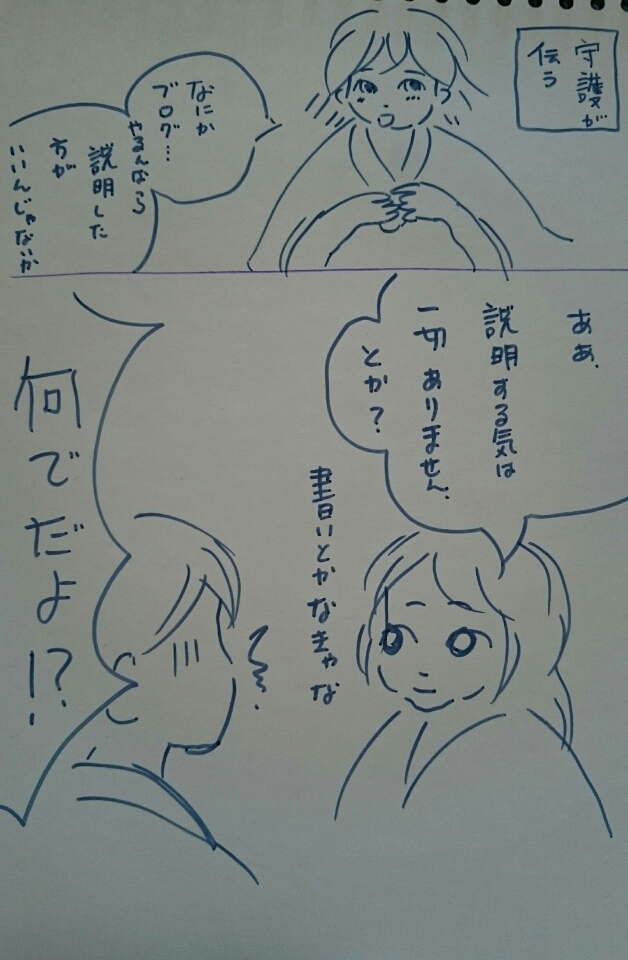 守護が
伝う
なにか
ブログ…
やるんなら
説明した
方が
いいんじゃないか
ああ、
説明する気は
一切ありません。
とか?
書いとかなきゃな
何でだよ!?